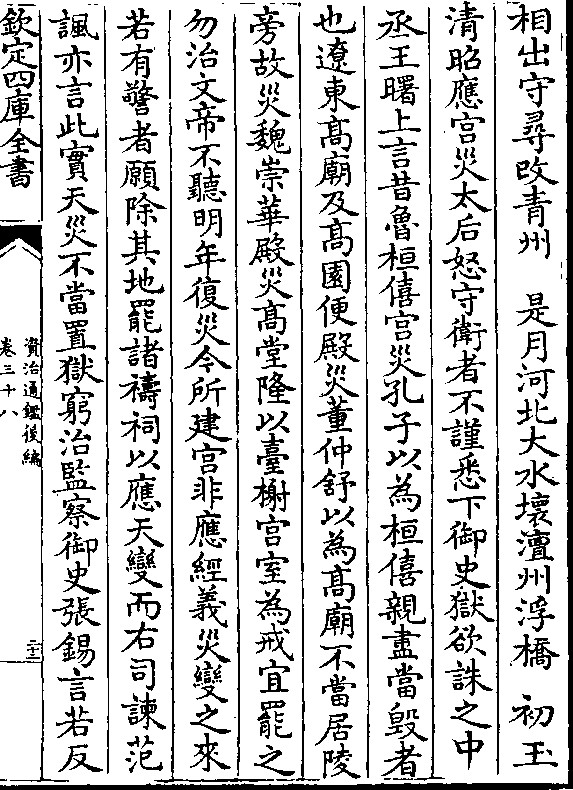 相出守尋改青州　是月河北大水壞澶州浮橋　初玉
清昭應宫災太后怒守衛者不謹悉下御史獄欲誅之中
丞王曙上言昔魯桓僖宫災孔子以為桓僖親盡當毁者
也遼東髙廟及髙園便殿災董仲舒以為髙廟不當居陵
旁故災魏崇華殿災髙堂隆以臺榭宫室為戒宜罷之
勿治文帝不聽明年復災今所建宫非應經義災變之來
若有警者願除其地罷諸禱祠以應天變而右司諫范
諷亦言此實天災不當置獄窮治監察御史張錫言若反
欽定四庫全書
資治通鑑後編
卷三十八
二十二